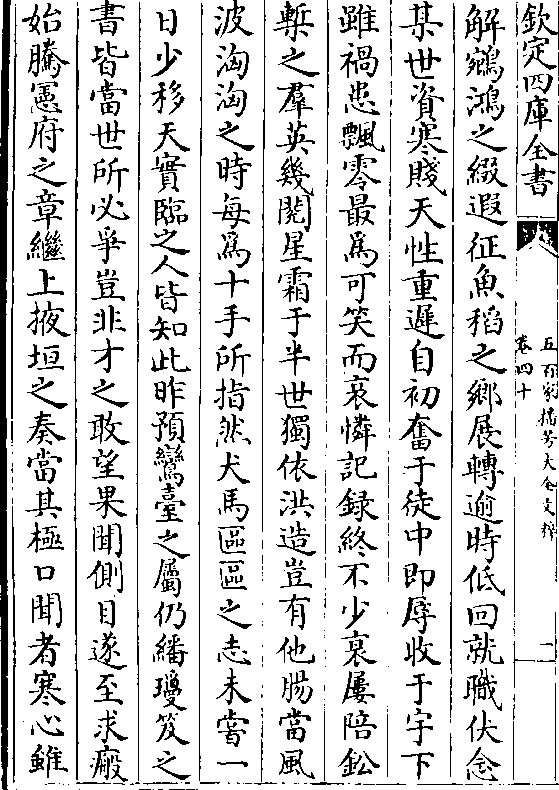 欽定四庫全書
五百家播芳大全文粹
卷四十
二
解鵷鴻之綴遐征魚稻之鄉展轉逾時低回就職伏念
某世資寒賤天性重遲自初奮于徒中即辱收于宇下
雖禍患飄零最為可笑而哀憐記録終不少衰屢陪鈆
槧之羣英幾閱星霜于半世獨依洪造豈有他腸當風
波洶洶之時每為十手所指然犬馬區區之志未嘗一
日少移天實臨之人皆知此昨預鸞臺之屬仍繙瓊笈之
書皆當世所必爭豈非才之敢望果聞側目遂至求瘢
始騰憲府之章繼上掖垣之奏當其極口聞者寒心雖